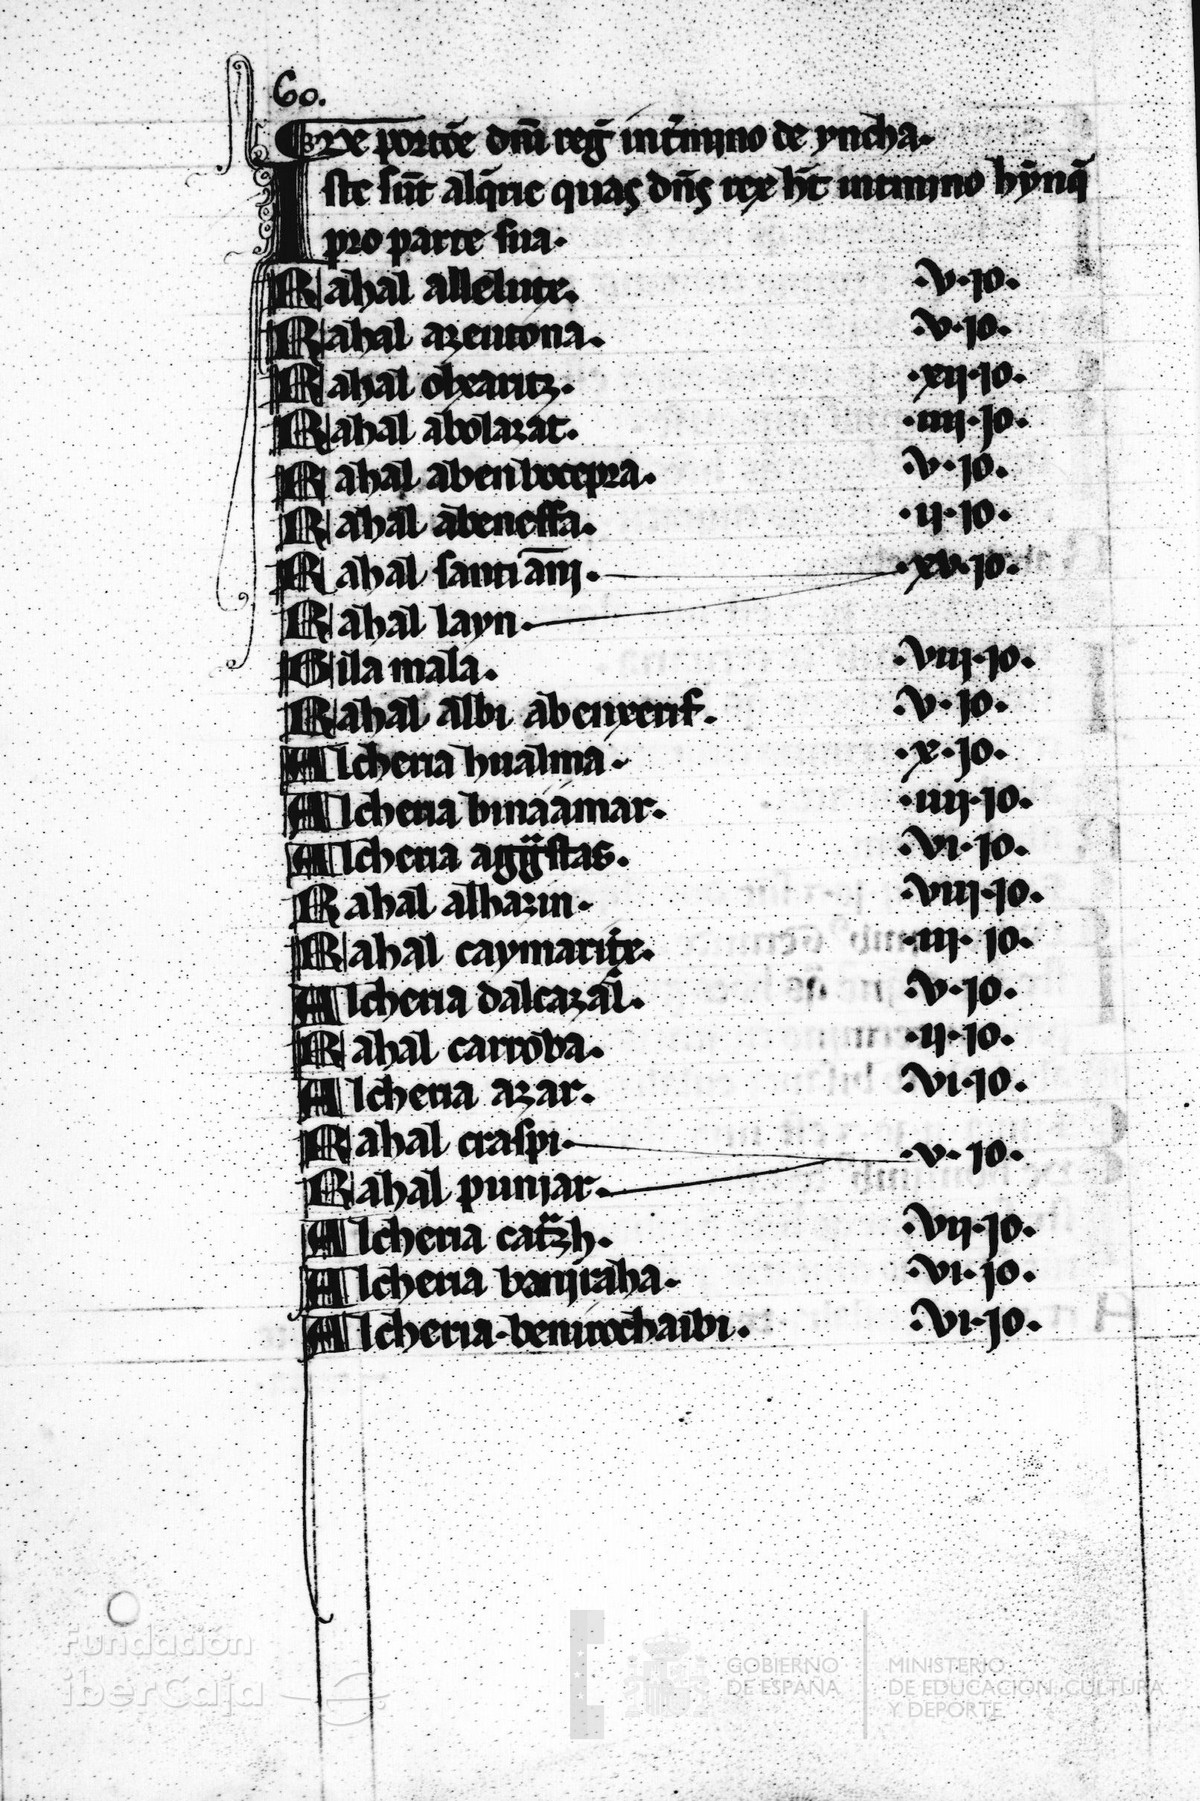 60.
De portõe dñi reg̃ int̃mino de yncha.
Iste sũt alq̃rie quas dñs rex h̃t intmino hỹnq̃
pro parte sua.
Rahal allelute. .v.io.
Rahal azeutona. .v.io.
Rahal olxaritz. .xii.io.
Rahal abolazat. .iiii.io.
Rahal abenbocepra. .v.io.
Rahal abeneffa. .ii.io.
Rahal santiam̃. .xv.io.
Rahal layn.
Gila mala. .viii.io.
Rahal albi abenxerif. .v.io.
Alcheria hualma. .x.io.
Alcheria binaamar. .iiii.io.
Alcheria .vi.io.
Rahal alhazin. .viii.io.
Rahal caymaritx. .iii.io.
Alcheria dalcazar. .v.io.
Rahal carroba. .ii.io.
Alcheria azar. .vi.io.
Rahal craspi. .v.io.
Rahal punjar.
Alcheria .vii.io.
Alcheria baniraha. .vi.io.
Alcheria benirochaibi. .vi.io.
Fundación
iberCaja
GOBIERNO
DE ESPAÑA
MINISTERIO
DE EDUCACIÓN, CULTURA
Y DEPORTE